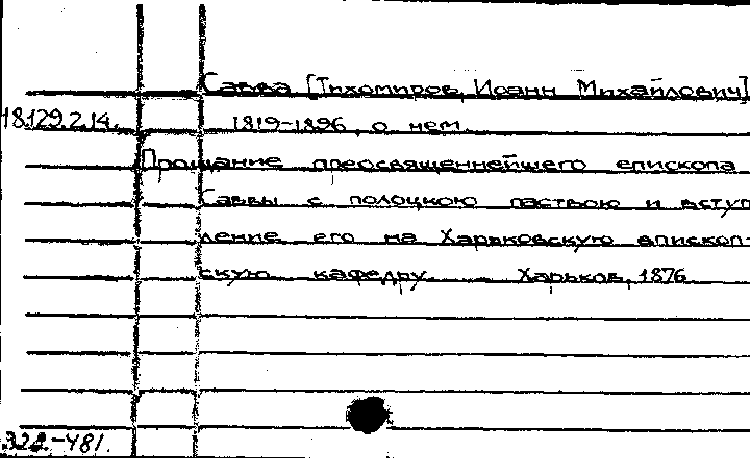 Савва [Тихомиров, Иоанн Михайлович]
18129.2.14. 1819-1896, о нем.
Прощание преосвященнейшего епископа
Саввы с полоцкою паствою и вступ-
ление его на Харьковскую епископ-
скую кафедру Харьков, 1876
322.-481.